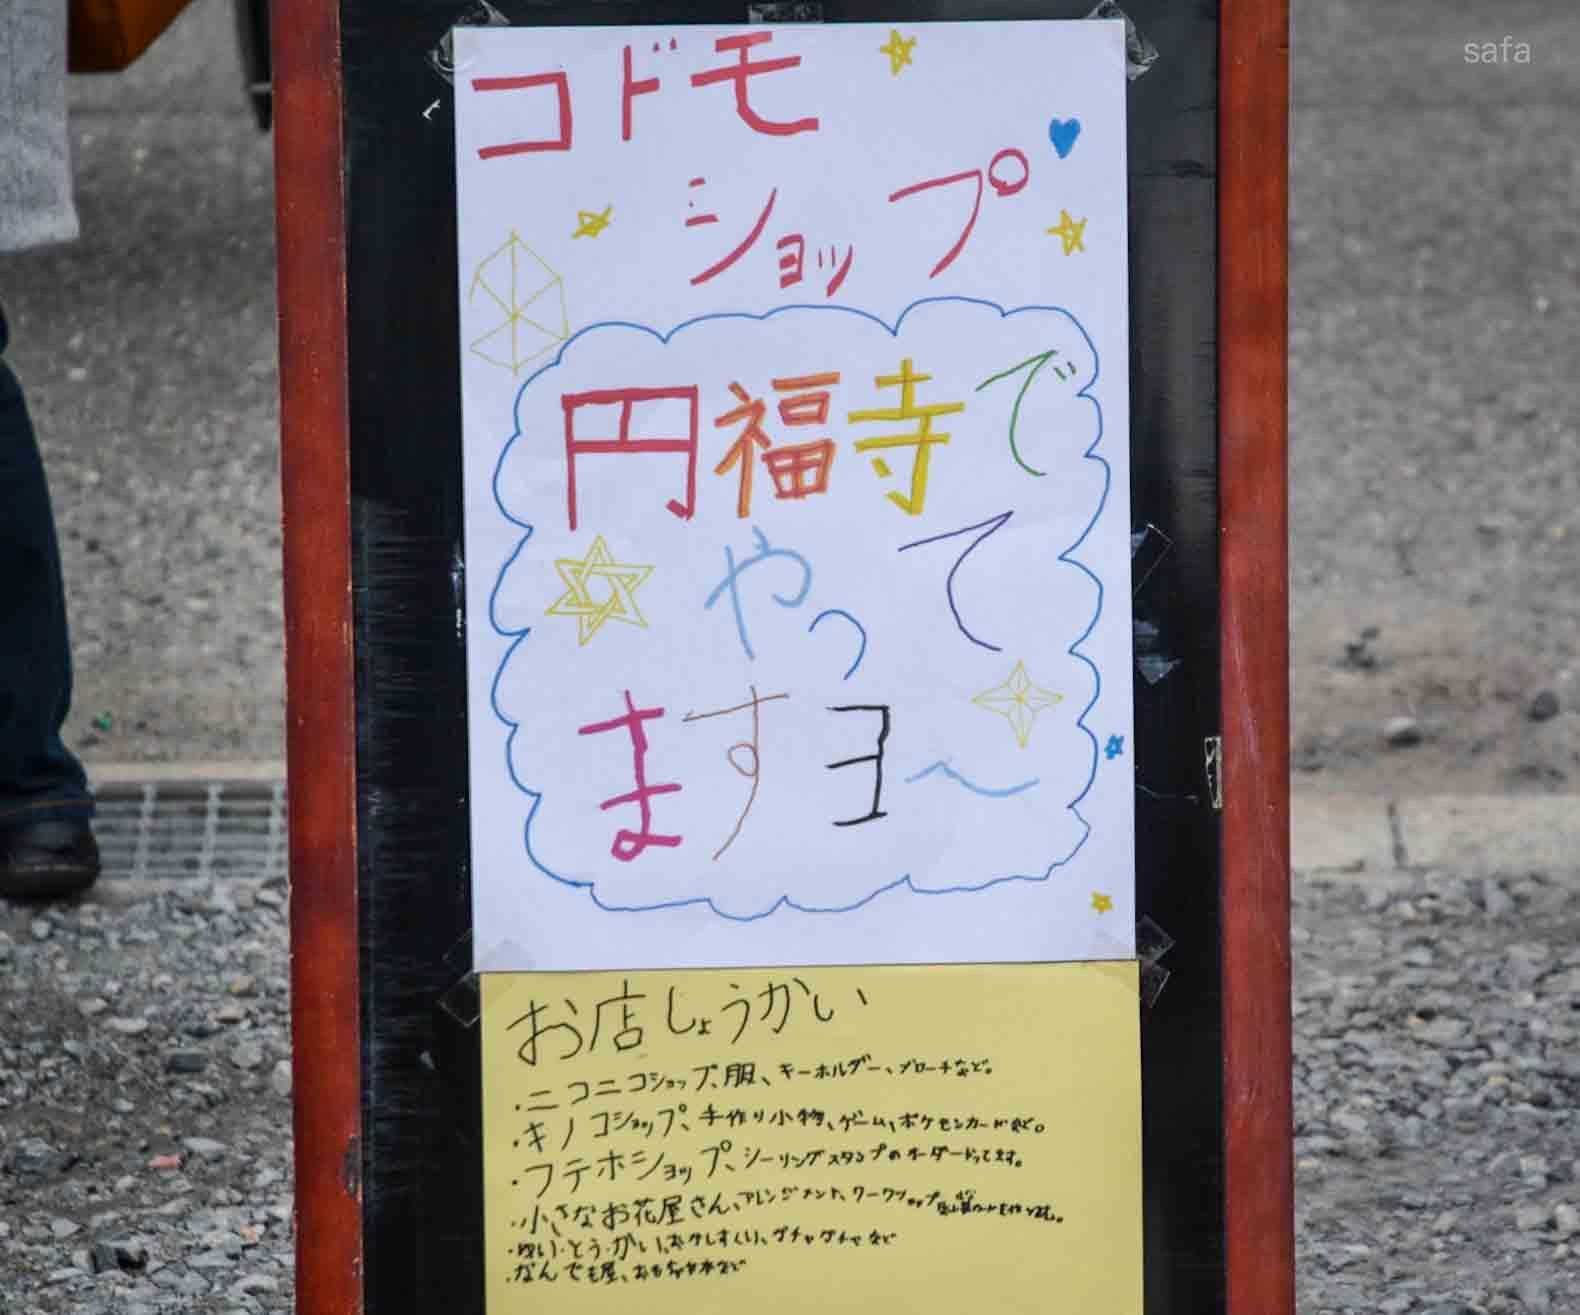 safa
コドモ
ショップ
円福寺で
やって
ますヨ〜
お店しょうかい
・ニコニコショップ、服、キーホルダー、ブローチなど。
・キノコショップ、手作り小物、ゲーム、ポケモンカードなど。
・フテホショップ、シーリングスタンプのオーダーやってます。
・小さなお花屋さん、アレンジメント、ワークショップ
・ゆい・とう・かい、おかしすくい、グチャグチャなど
・なんでも屋、おもちゃ本など